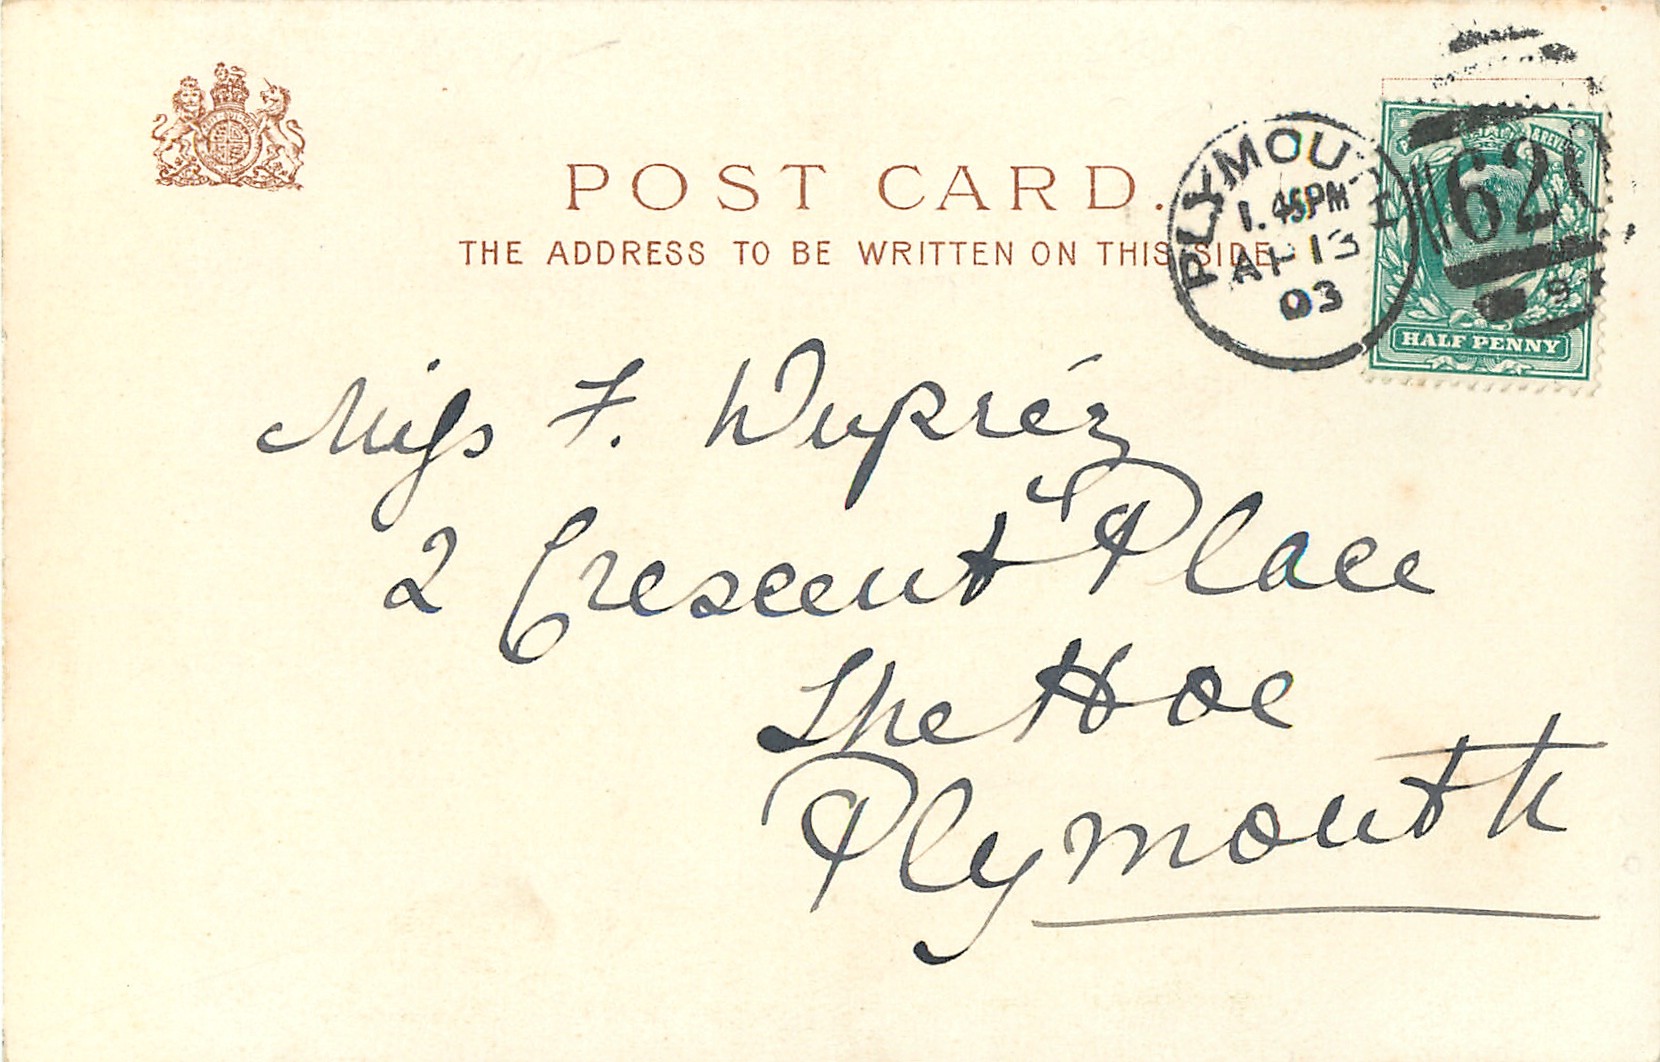 POST CARD.
THE ADDRESS TO BE WRITTEN ON THIS SIDE
PLYMOUTH
1.45PM
AP 13
03
620
9
HALF PENNY
Miss F. Dupréz
2 Crescent Place
The Hoe
Plymouth